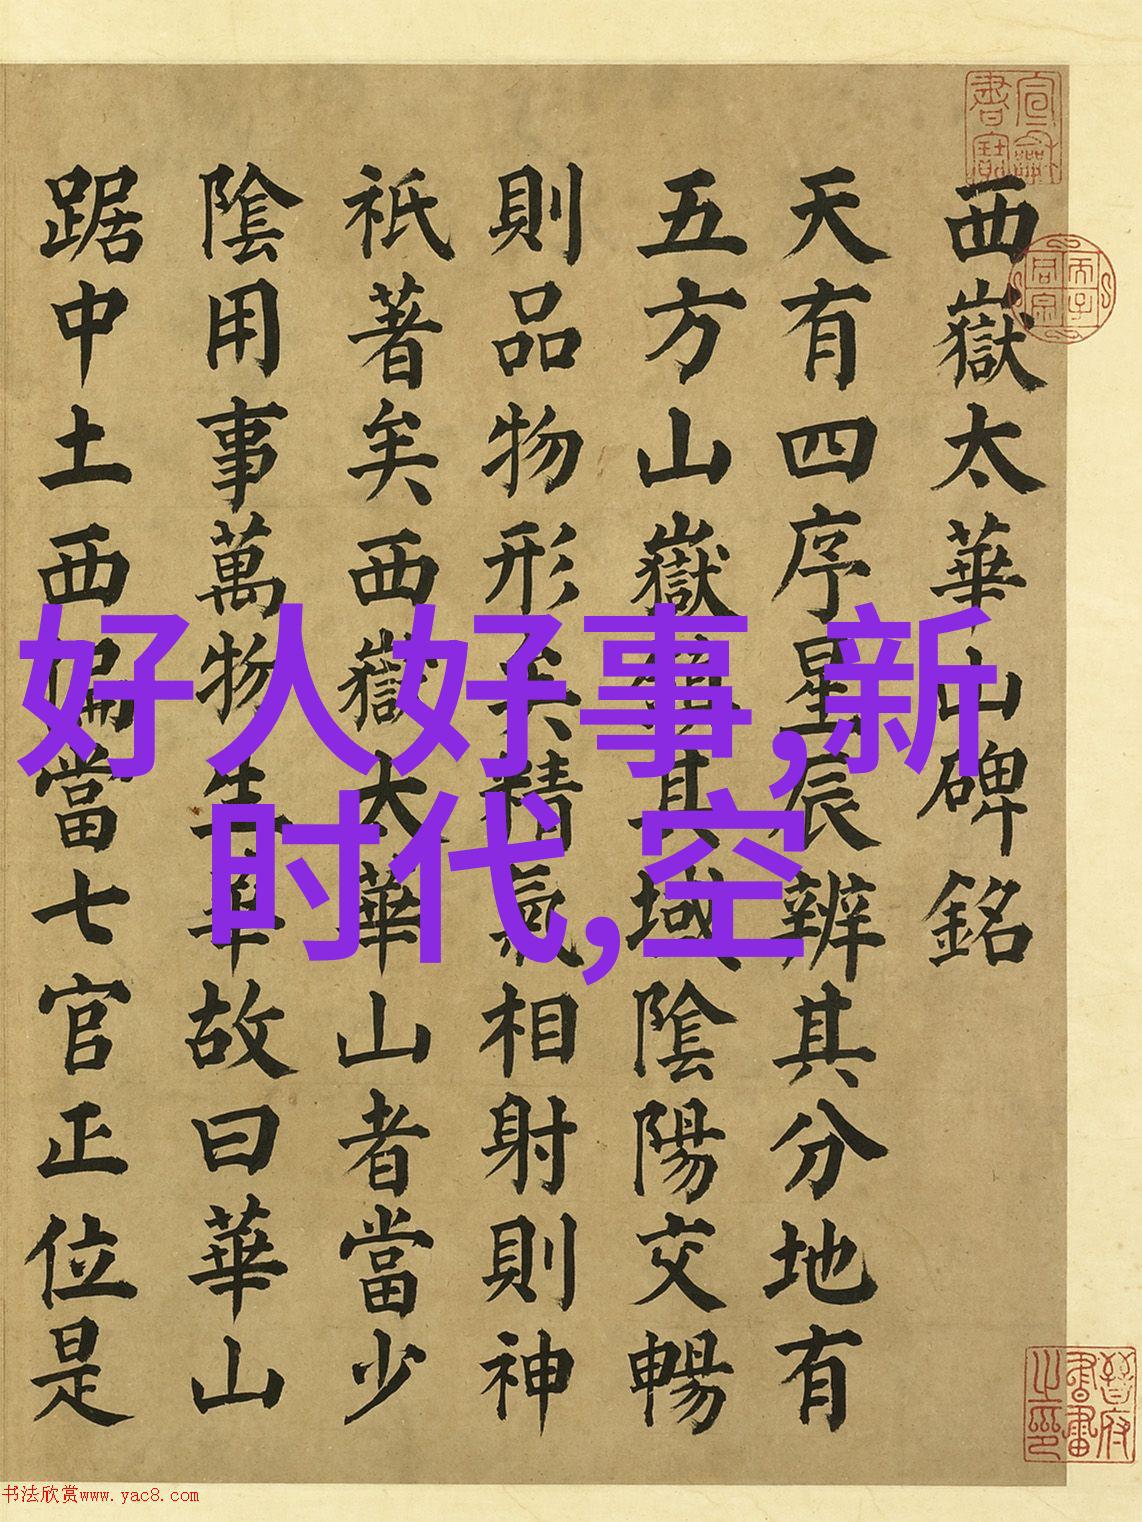 西嶽太華山碑銘
天有四序星辰辨其分地有
五方山嶽其域陰陽交暢
則品物形矣精氣相射則神
祇著矣西嶽大華山者當少
陰用事萬物生華故曰華山
踞中土西偏當七官正位是
好人好事,新
时代,空
晉府書畫之印
书法欣赏www.yac8.com